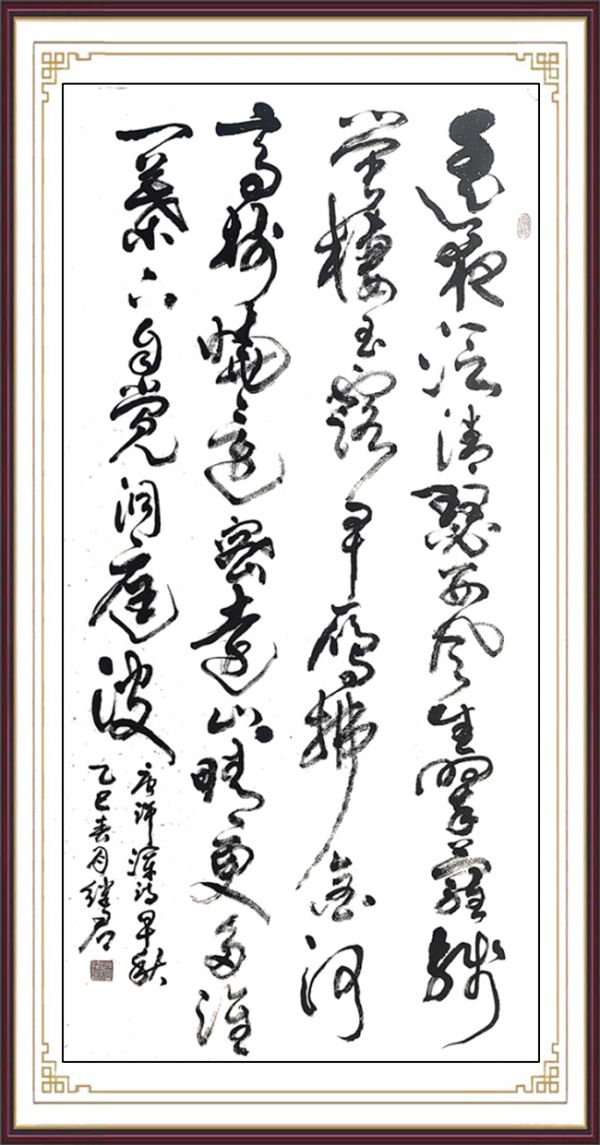 遥夜泛清瑟西风生翠蘿残
萤棲玉露早雁拂金河
高树曉还密远山晴更多淮
一葉下自觉洞庭波
唐许浑诗早秋
乙巳春月继君